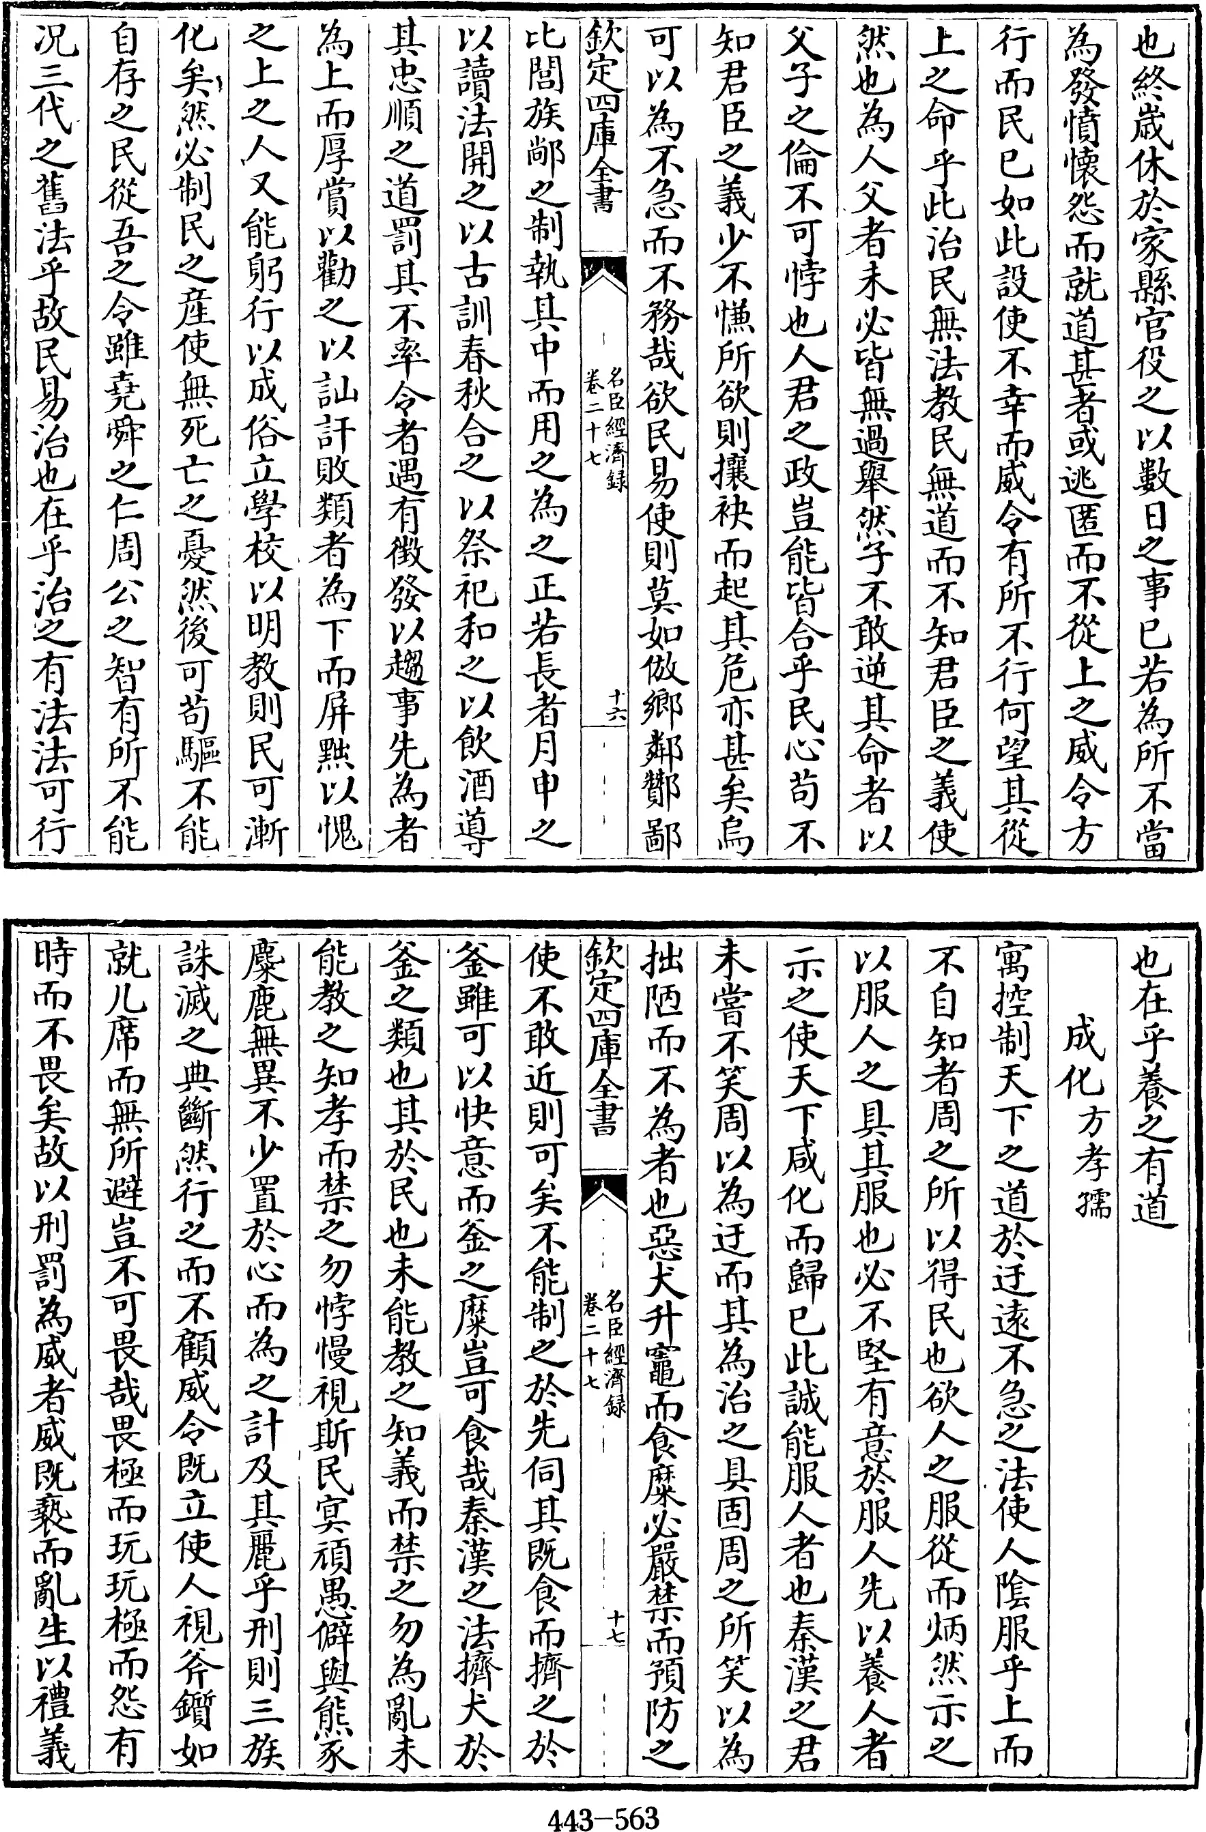 也終歲休於家縣官役之以數日之事已若為所不當
為發憤懷怨而就道甚者或逃匿而不從上之威令方
行而民已如此設使不幸而威令有所不行何望其從
上之命乎此治民無法教民無道而不知君臣之義使
然也為人父者未必皆無過舉然子不敢逆其命者以
父子之倫不可悖也人君之政豈能皆合乎民心苟不
知君臣之義少不慊所欲則攘袂而起其危亦甚矣烏
可以為不急而不務哉欲民易使則莫如倣鄉鄰酇鄙
欽定四庫全書
名臣經濟録
卷二十七
十六
比閭族鄙之制執其中而用之為之正若長者月申之
以讀法開之以古訓春秋合之以祭祀和之以飲酒導
其忠順之道罰其不率令者遇有徵發以趨事先為者
為上而厚賞以勸之以訕訐敗類者為下而屏黜以愧
之上之人又能躬行以成俗立學校以明教則民可漸
化矣然必制民之產使無死亡之憂然後可苟驅不能
自存之民從吾之令雖堯舜之仁周公之智有所不能
况三代之舊法乎故民易治也在乎治之有法法可行
也在乎養之有道
成化 方孝孺
寓控制天下之道於迂遠不急之法使人陰服乎上而
不自知者周之所以得民也欲人之服從而炳然示之
以服人之具其服也必不堅有意於服人先以養人者
示之使天下咸化而歸已此誠能服人者也秦漢之君
未嘗不笑周以為迂而其為治之具固周之所笑以為
拙陋而不為者也惡犬升竈而食糜必嚴禁而預防之
欽定四庫全書
名臣經濟録
卷二十七
十七
使不敢近則可矣不能制之於先伺其既食而擠之於
釜雖可以快意而釜之糜豈可食哉秦漢之法擠犬於
釜之類也其於民也未能教之知義而禁之勿為亂未
能教之知孝而禁之勿悖慢視斯民冥頑愚僻與熊豕
麋鹿無異不少置於心而為之計及其麗乎刑則三族
誅滅之典斷然行之而不顧威令既立使人視斧鑕如
就几席而無所避豈不可畏哉畏極而玩玩極而怨有
時而不畏矣故以刑罰為威者威既褻而亂生以禮義
443-563